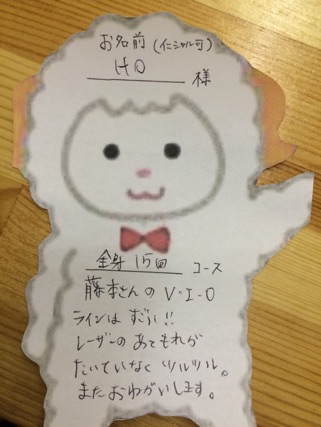 お名前(イニシャル可)
HO 様
全身 15回 コース
藤本さんの V・I・O
ラインは すごい!!
レーザーの あてもれが
たいていなく ツルツル。
またおねがいします。